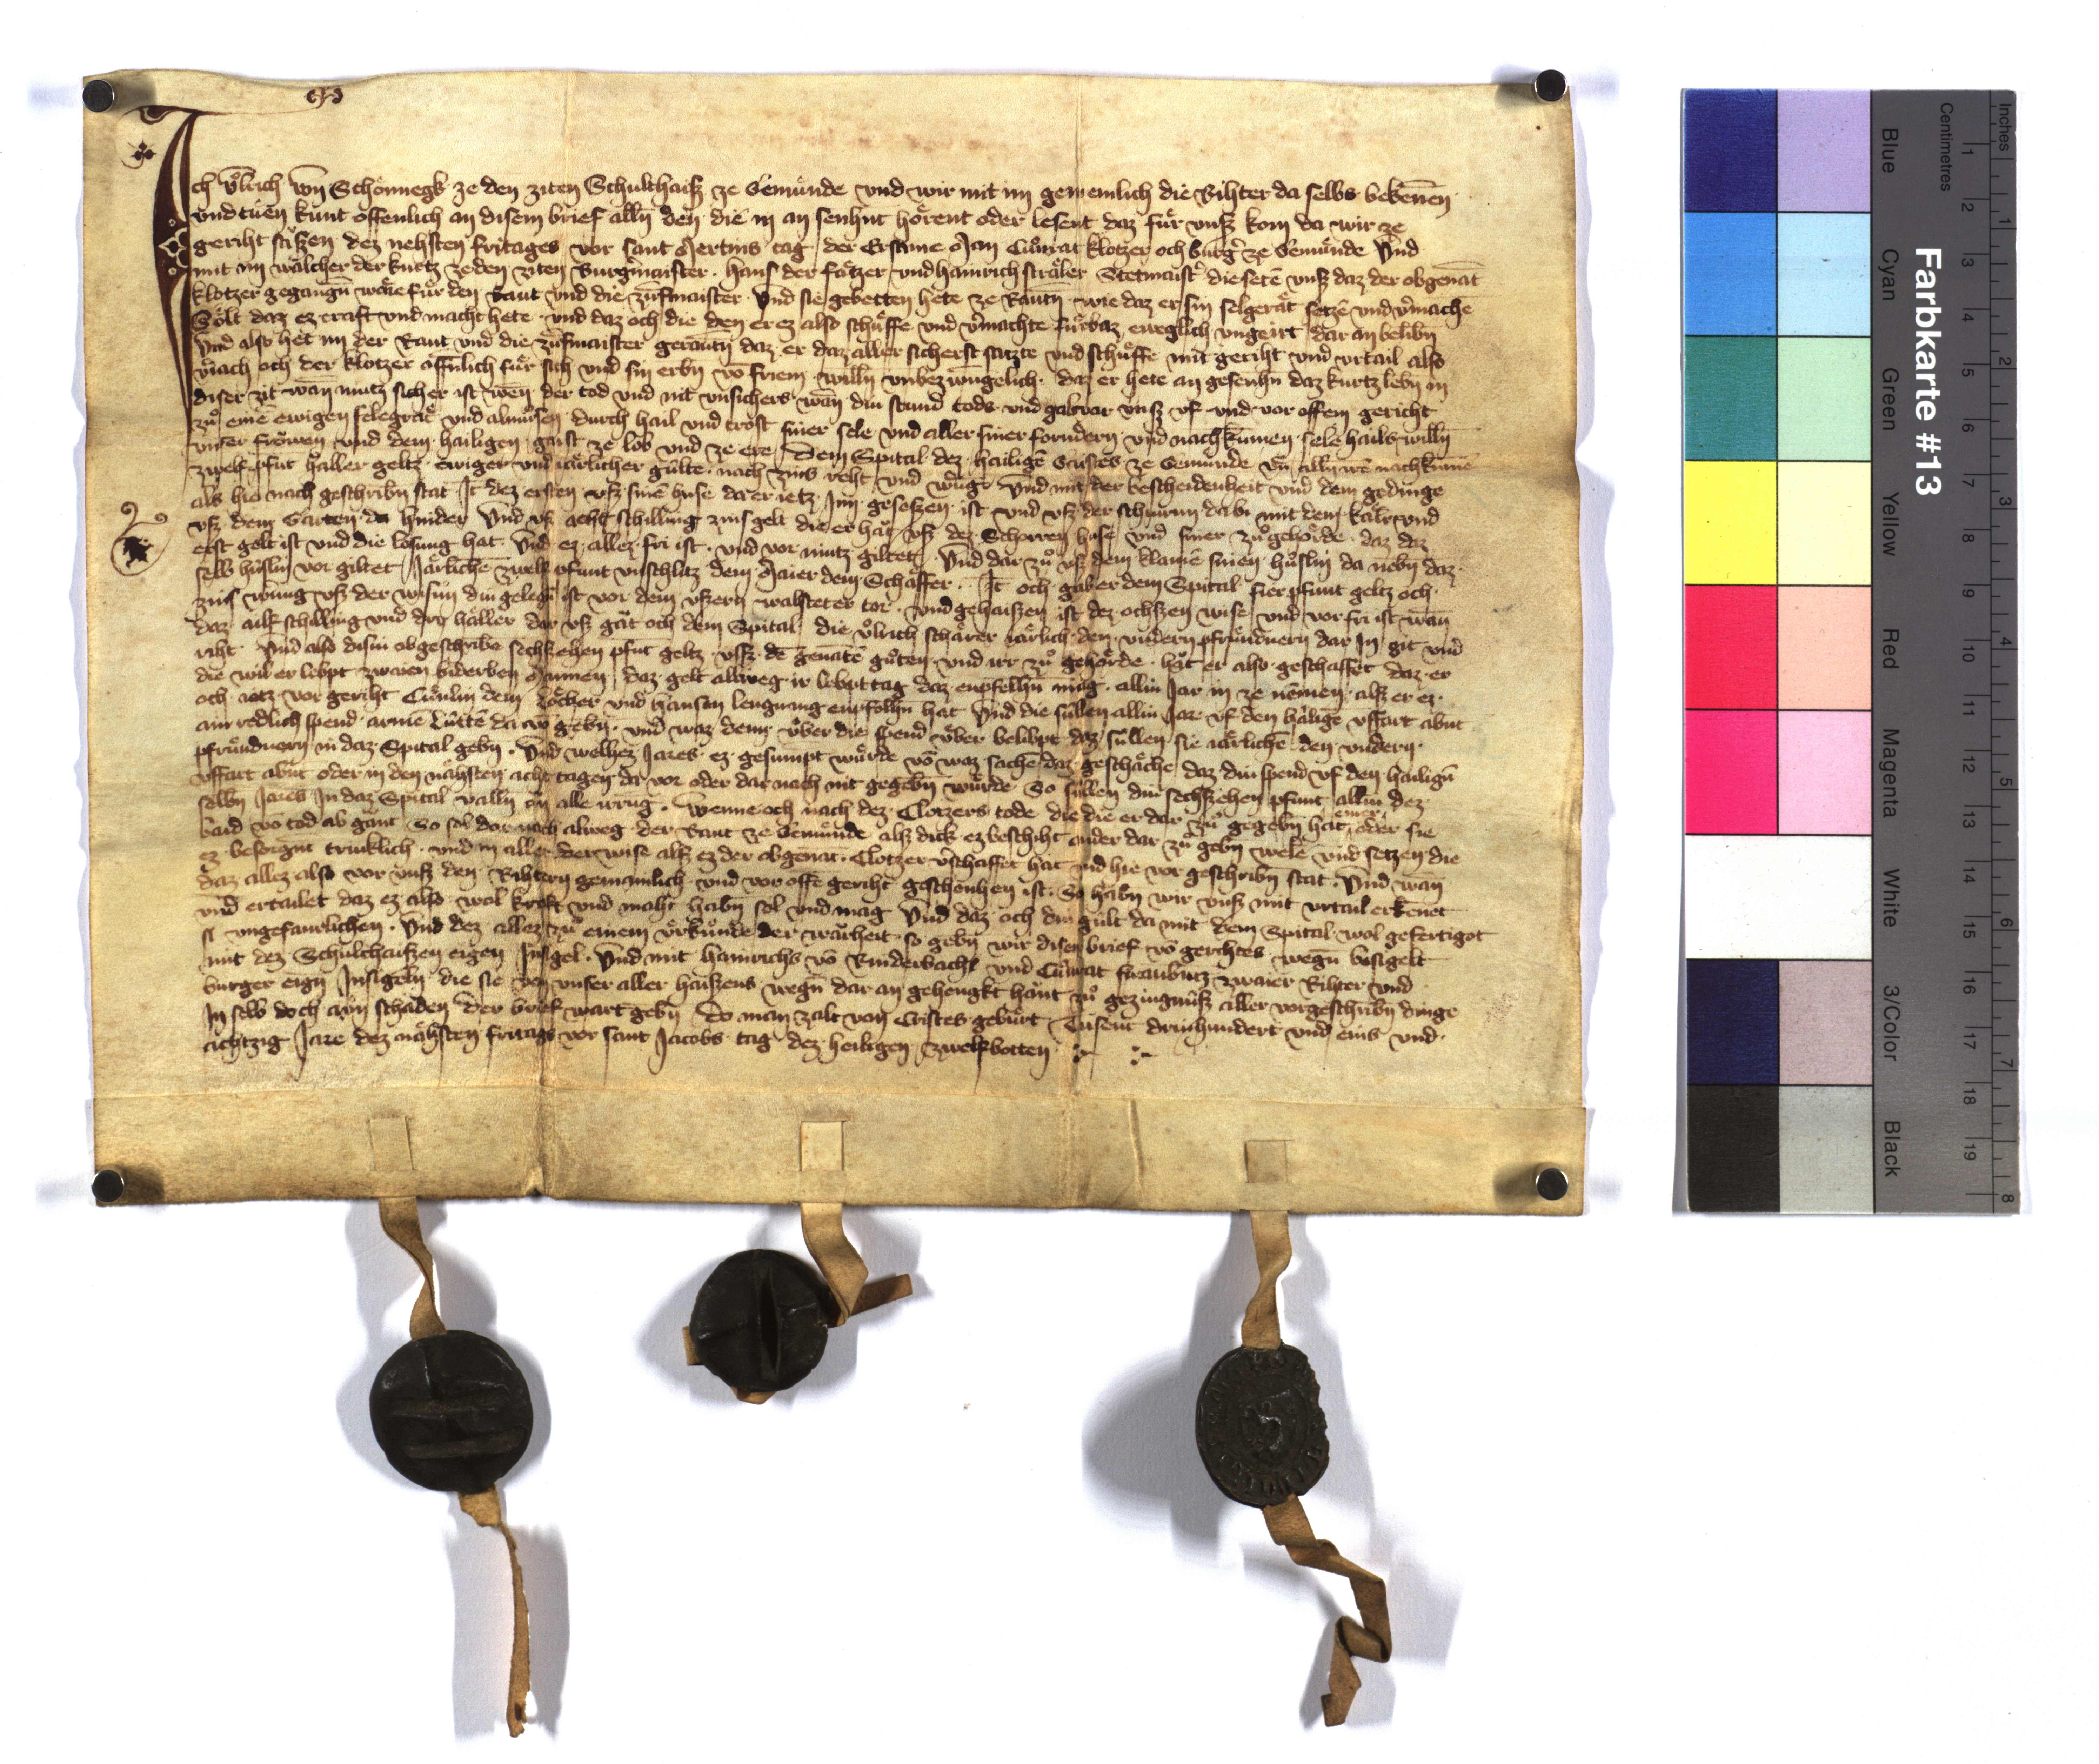 Ich Uͦlrich von Schoͤnnegk ze den ziten Schulthaiß ze Gemuͤnde und wir mit im gemeinlich die Rihter da selbs bekēnen
und tuͤen kunt offenlich an disem brief alln̄ den die in an sehnt hoͤrent oder lesent daz fuͤr unß kom da wir ze
geriht saͤßen dez nehsten fritages vor sant tag der Ersame Man Cuͦnrat klotzer och burg̾ ze Gemuͤnde Und
mit im walcher der kurtz ze den ziten Burgmaister. Hans der faͤtzer und Hainrich straͤler Stetmaist̾ die seten unß daz der obgenāt
klotzer gegangn̄ waͤre fuͤr den Raut und die zūfmaister Und sie gebetten hete ze Rautn̄ wie daz er sin selgeraͤt setze und v̾mache
Soͤlt daz ez craft und macht hete und daz och die den er ez also schuͤffe und v̾machte fuͤrbaz eweglich ungeirt dar an belibn̄
Und also het im der Raut und die zūfmaister gerautn̄ daz er daz aller sicherst satzte und schuͤffe mit geriht und urtail also
v̾iach och der klotzer offēnlich fuͤr sich und sin erbn̄ vō friem willn̄ unbezwūgelich daz er hete an gesenhn̄ daz kurtz lebn̄ in
diser zit wan nintz sicher ist wen der tod und nit unsichers wan diu stund tods und gab vor unß uf und vor offem gericht
zuͦ einē ewigen selegraͤt und almuͦsen durch hail und trost siner sele und aller siner fordern und nachkumen sele hails willn̄
unser frowen und dem hailigen gaist ze lob und ze ere Dem Spital dez hailigē Gaistes ze Gemuͤnde un̄ alln̄ irē nachkumē
zwelf pfūt haͤller geltz ewiger und iaͤrlicher gulte nach zins reht und Und mit der bescheidenheit und dem gedinge
als hie nach geschribn̄ stat It dez ersten uß sinē huse da er ietz Inn geseßen ist und uß der schurun da bi mit dem und
uß dem Garten da hinder Und uß aht schilling zins gelt die er haͤt uß dez huse und siner zuͦgehoͤrde daz daz
erst gelt ist und die losung hat Und ez allez fri ist und vor nintz giltet Und dar zuͦ uß dem klainē sinen huͤslin da nebn̄ daz
selb huslin vor giltet Jaͤrlichē zwelf pfunt unschlitz dem Maier dem Schaffer It och gab er dem Spital fier pfunt geltz och
zins uß der wisun diu gelegn̄ ist vor dem ußern tor und gehaißen ist dez ochßen wise und vor fri ist wan
daz ailf schilling und dry haͤller dar uß gaͤt och dem Spital die Uͦlrich schaͤrer iaͤrlich den undern pfruͤndnern dar In git und
riht Und also disiu obgeschribn̄ sechßehen pfūt geltz ußz dē genatē guͤten und irr zuͦ gehoͤrde haͤt er also geschaffet daz er
die wil er lebpt zwaien biderben Mannen daz gelt allweg ir lebpttag daz enpfelhn̄ mug alliu Jar in ze nēmen alß er ez
och ietz vor geriht Cuͦnlin dem Loͤcher und Hansen enpfolhn̄ hat Und die suͤllen alliu Jare uf den hailigē uffart abnt
ain redlich spend arme Luͤttē da vō gebn̄ und waz denn uͤber die spend uͤber belibpt daz suͤllen sie iaͤrlichē den undern
pfruͤndnern in daz Spital gebn̄ Und welhez Jares ez gesumpt wuͤrde vō waz sachē daz geschaͤche daz diu spend uf den hailign̄
uffart abnt oder in den naͤhsten acht tagen da vor oder dar nach nit gegebn̄ wurde So suͤllen diu sechßehen pfunt alliu dez
selbn̄ Jares In daz Spital valln̄ on alle irrug Wenne och nach dez Clotzers tode die die er dar zuͦ gegebn̄ hat einer oder sie
baid vō tod ab gant So sol dar nach alweg der Raut ze Gemuͤnde alß dick ez beschiht ander dar zuͦ gebn̄ wele und setzen die
ez besorgnt truͤlich und in aller der wise alß ez der obgenāt Clotzer v̾schaffet hat und hie vor geschribn̄ stat Und wan
daz allez also vor unß den Rihtern gemainlich und vor offē geriht geschenhen ist So habn̄ wir unß mit urtail erkenet
und ertailet daz ez also wol kraft und maht habn̄ sol und mag Und daz och diu gult da mit dem Spital wol gefertigot
si ungefaurlichen Und dez allez zuͦ einem urkuͤnde der warheit so gebn̄ wir disen brief vō gerihtes wegn̄ besigelt
mit dez Schulthaißen eigen Insigel Und mit Hainrichs vō Rinderbach und Cuͦnrat zwaier Rihter und
burger eign̄ Insigeln̄ die sie von unser aller haißens wegn̄ dar an gehengkt hant zuͦ gezuͤgnuͤß aller vorgeschribn̄ dinge
In selb doch schaden der brief wart gebn̄ Do man zalt von Cristes geburt Tusent driuhundert und eins und
achtzig Jare dez naͤhsten fritags vor sant Jacobs tag dez heiligen zwelfbotten
Farbkarte #13
Blue Cyan Green Yellow Red Magenta White 3/Color Black
Centimetres 1 2 3 4 5 6 7 8 9 10 11 12 13 14 15 16 17 18 19
Inches 1 2 3 4 5 6 7 8